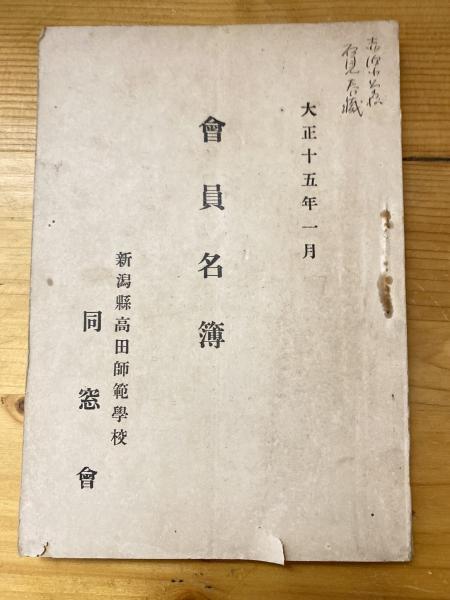 大正十五年一月
會員名簿
新潟縣高田師範學校
同窓會